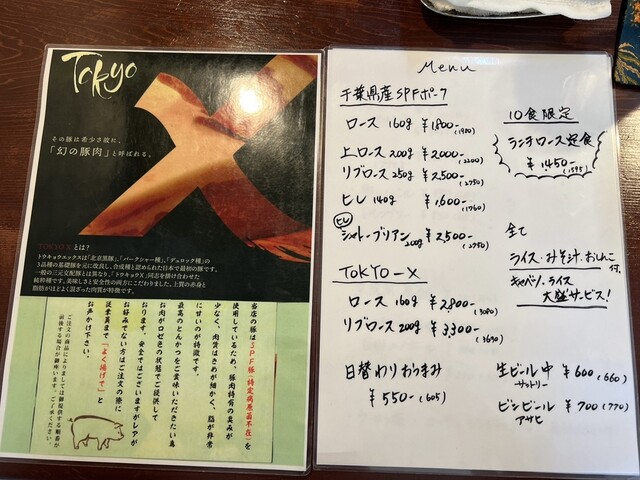 Tokyo
その豚は希少さ故に、
「幻の豚肉」と呼ばれる。
TOKYO X とは?
トウキョウエックスは「北京黒豚」、「バークシャー種」、「デュロック種」の
3品種の基礎豚を元に改良し、合成種と認められた日本で最初の豚です。
一般の三元交配豚とは異なり、「トウキョウX」同志を掛け合わせた
純粋種です。美味しさと安全性の両方にこだわりました。上質の赤身と
脂肪がほどよく混ざった肉質が特徴です。
当店の豚はSPF豚(特定病原菌不在)を
使用しているため、豚肉特有の臭みが
少なく、肉質はきめが細かく、脂が非常
に甘いのが特徴です。
最高のとんかつをご賞味いただきたい為
お肉がロゼ色の状態でご提供して
おります。安全ではございますがレアが
お好みでない方はご注文の際に
従業員まで「よく揚げて」と
お声がけ下さい。
ご注文の商品によりましては御提供する順番が
前後する場合が御座います。ご了承ください。
Menu
千葉県産SPFポーク
ロース 160g ¥1,800- (1980)
上ロース 200g ¥2,000- (2200)
リブロース 250g ¥2,500- (2750)
ヒレ 140g ¥1,600- (1760)
ヒレ
シャトーブリアン 200g ¥2,500- (2750)
TOKYO-X
ロース 160g ¥2,800- (3080)
リブロース 200g ¥3,300- (3630)
日替わりおつまみ
¥550- (605)
10食限定
ランチロース定食
¥1,450- (1595)
全て
ライス・みそ汁・おしんこ付。
キャベツ・ライス
大盛サービス!
生ビール中 ¥600 (660)
サントリー
ビンビール ¥700 (770)
アサヒ